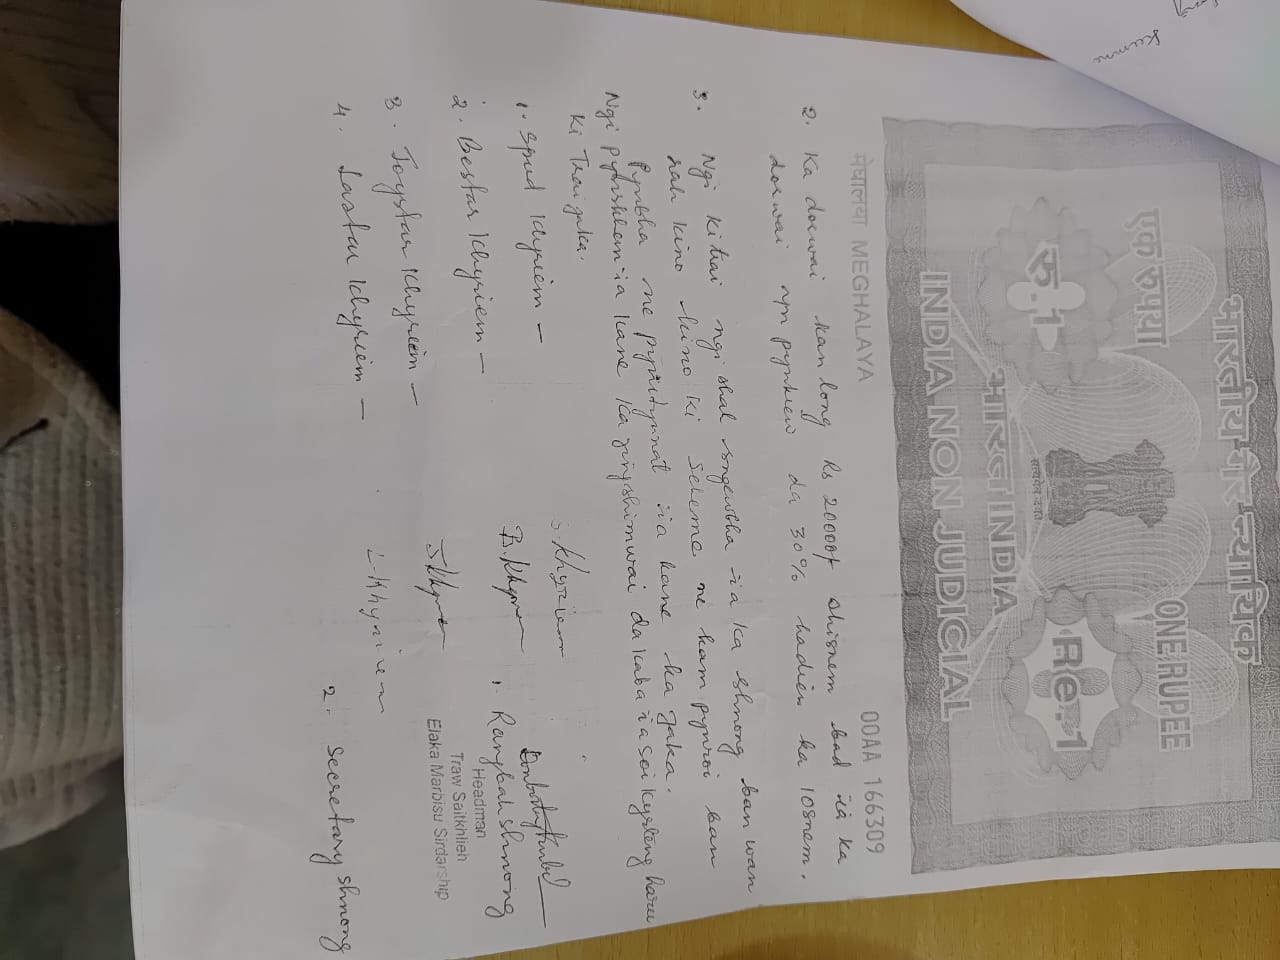 भारतीय गैर न्यायिक
एक रुपया
ONE RUPEE
रु.1
Re.1
भारत INDIA
सत्यमेव जयते
INDIA NON JUDICIAL
मेघालया MEGHALAYA
00AA 166309
2. Ka dorwai kan long Rs 20000/- shisnem bad ïa ka
dorwai yn pynkiew da 30% hadien ka 10snem.
3. Ngi ki trai ngi shah sngewbha ïa ka shnong ban wan
rah kino kino ki Scheme ne kam pynroi ban
Pynbha ne pynitynnat ïa kane ka Jaka.
Ngi pynshlem ïa kane ka jingshimwai da kaba ïa soi kyrteng harum
Ki Trai jaka.
1. Spud Khyriem – S. Khyriem
2. Bestar Khyriem – B. Khyriem
3. Joystar Khyriem –
4. Lastar Khyriem – L. Khyriem
1. Rangbah shnong
Headman
Traw Saitkhlieh
Elaka Marbisu Sirdarship
2. Secretary shnong